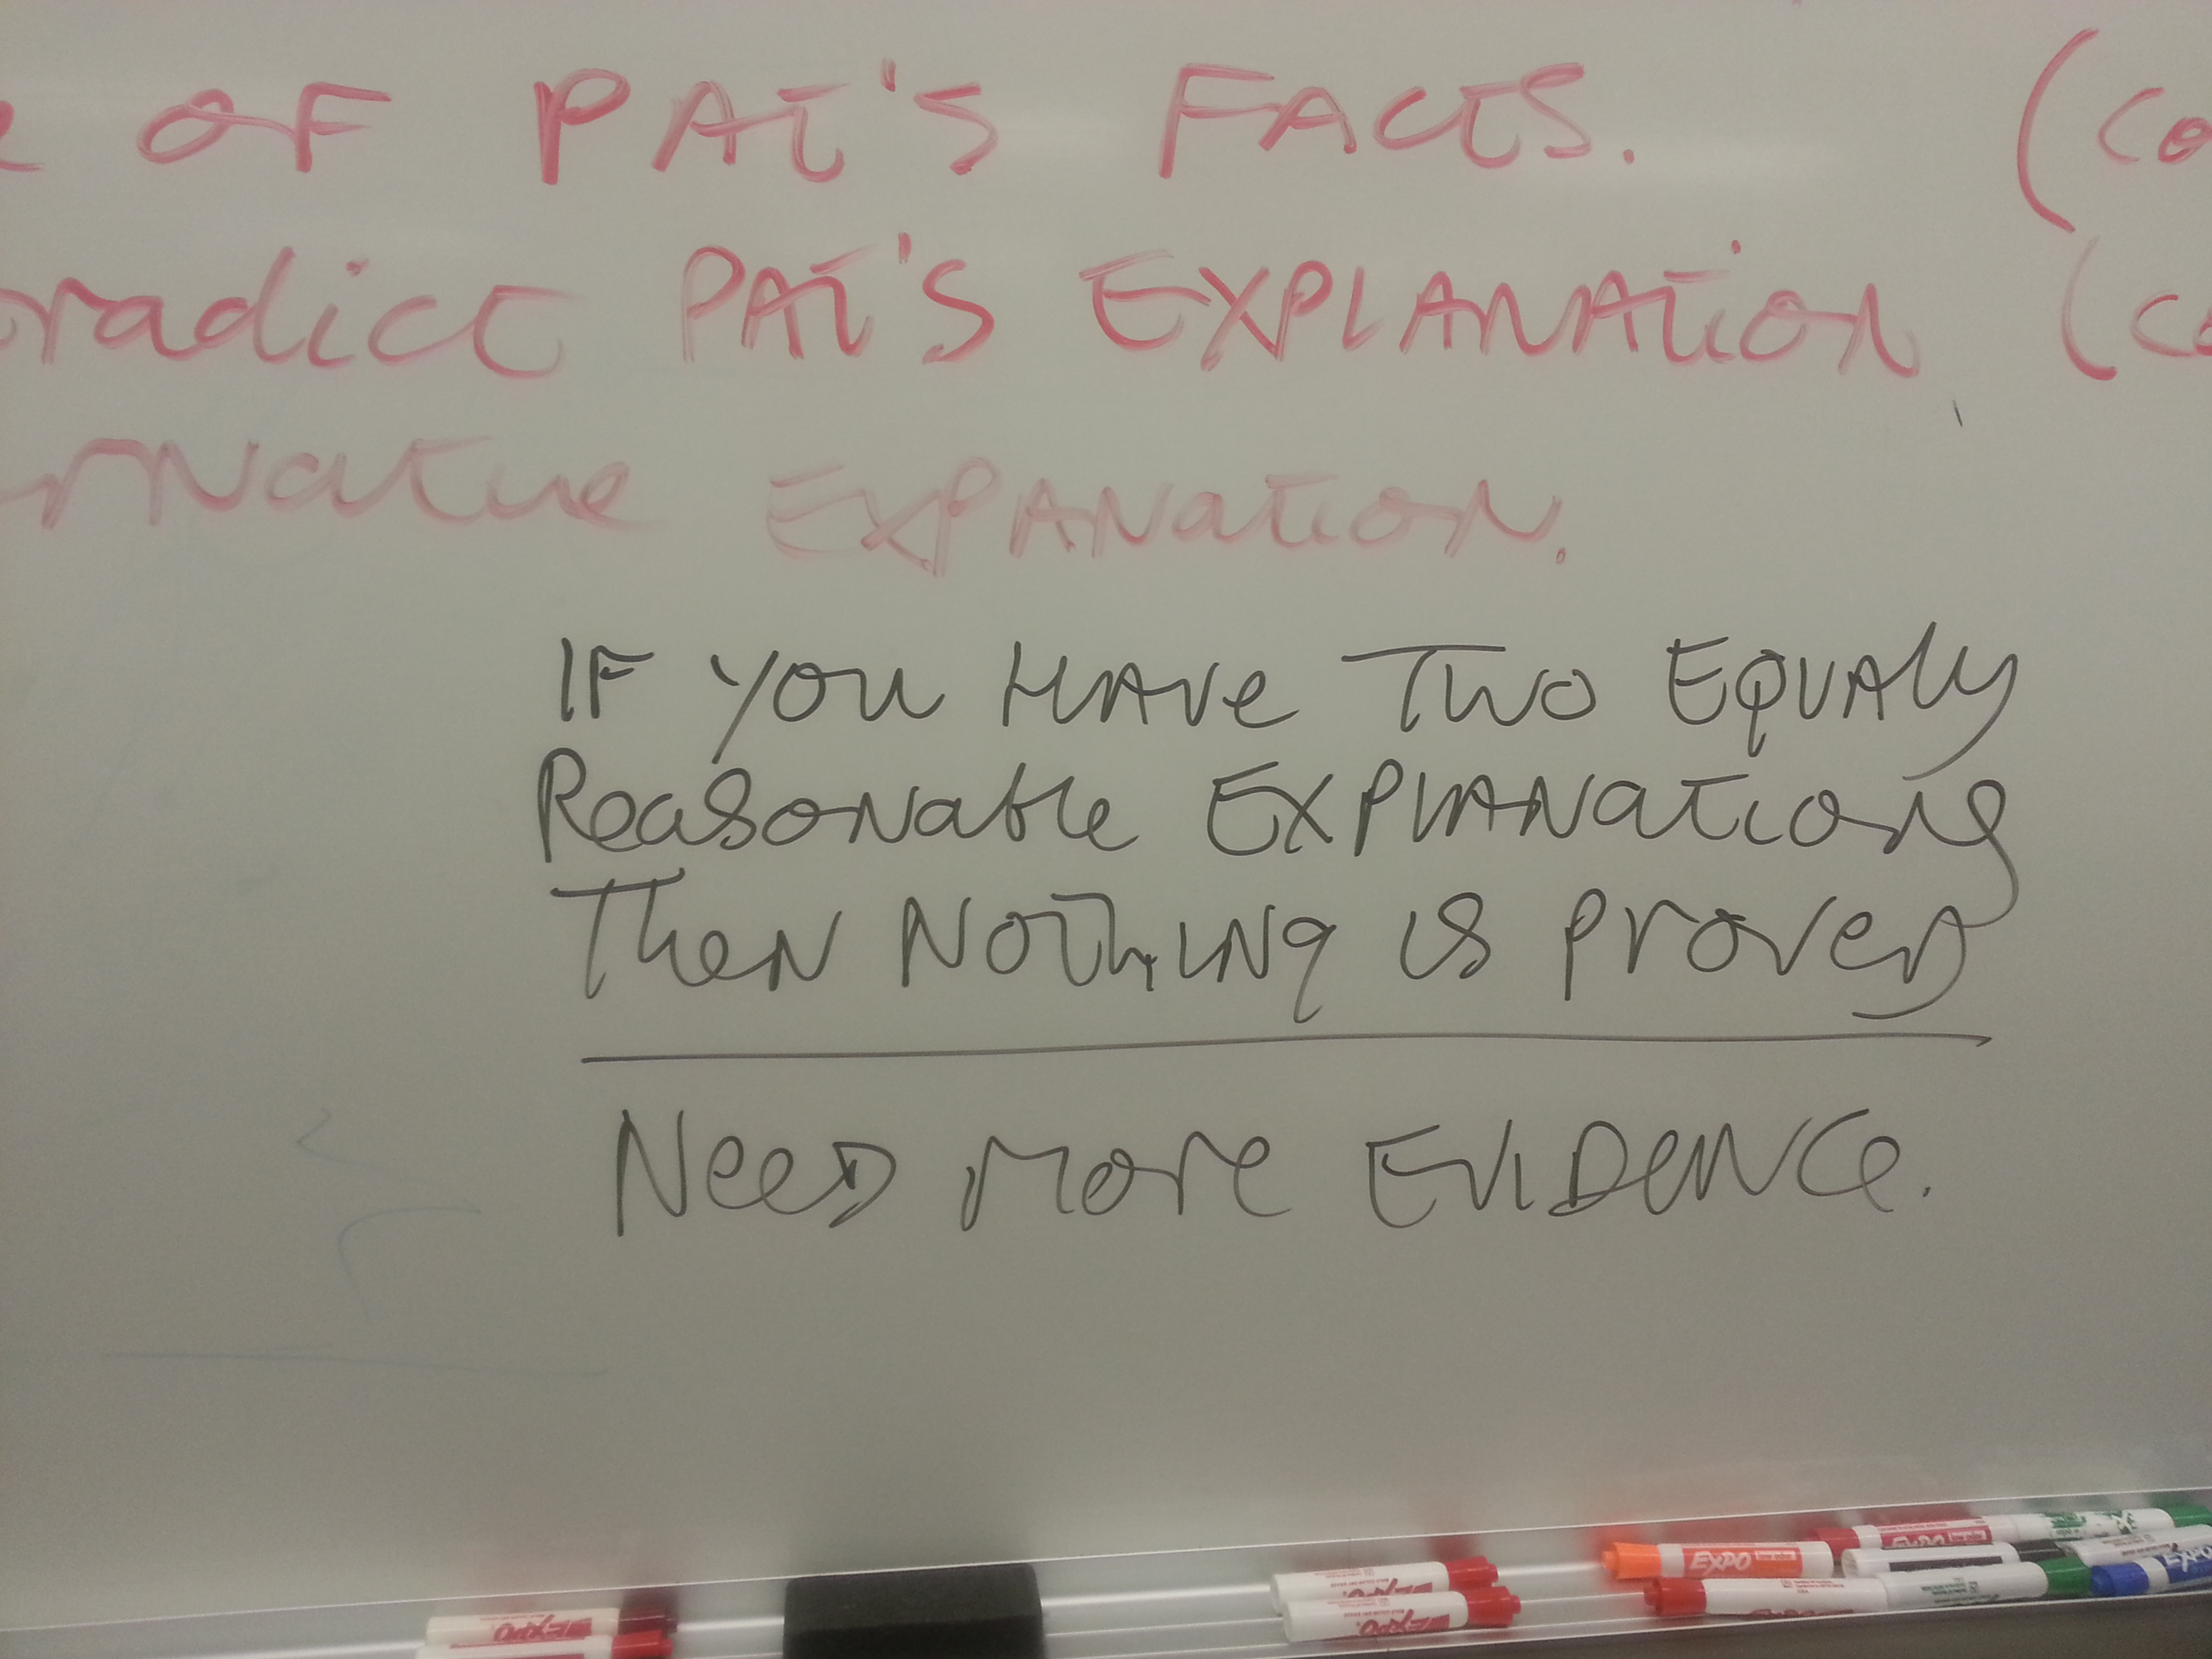 OF PAT'S FACTS. (co
radict PAT'S EXPLANATION (co
rNative EXPANation.
IF YOU HAVE TWO EQUALly
Reasonable EXPLANations
Then NOThING is proveD
NeeD More EVIDeNCe.
EXPO
EXPO
EXPO
EXPO
EXPO
EXPO